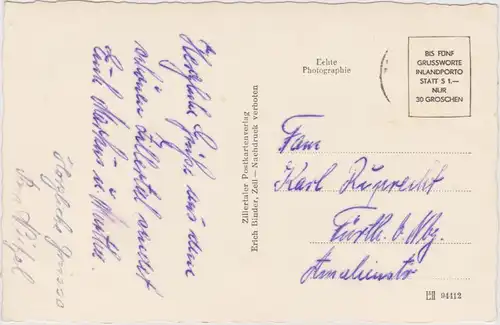 Herzliche Grüße aus dem
schönen Zillertal sendet
Euch Markus u. Mutter.
Herzliche Grüsse
Echte
Photographie
BIS FÜNF
GRUSSWORTE
INLANDPORTO
STATT S 1.—
NUR
30 GROSCHEN
Zillertaler Postkartenverlag
Erich Binder, Zell — Nachdruck verboten
Fam
Karl Ruprecht
Fürth b. Nbg.
Amalienstr
94412